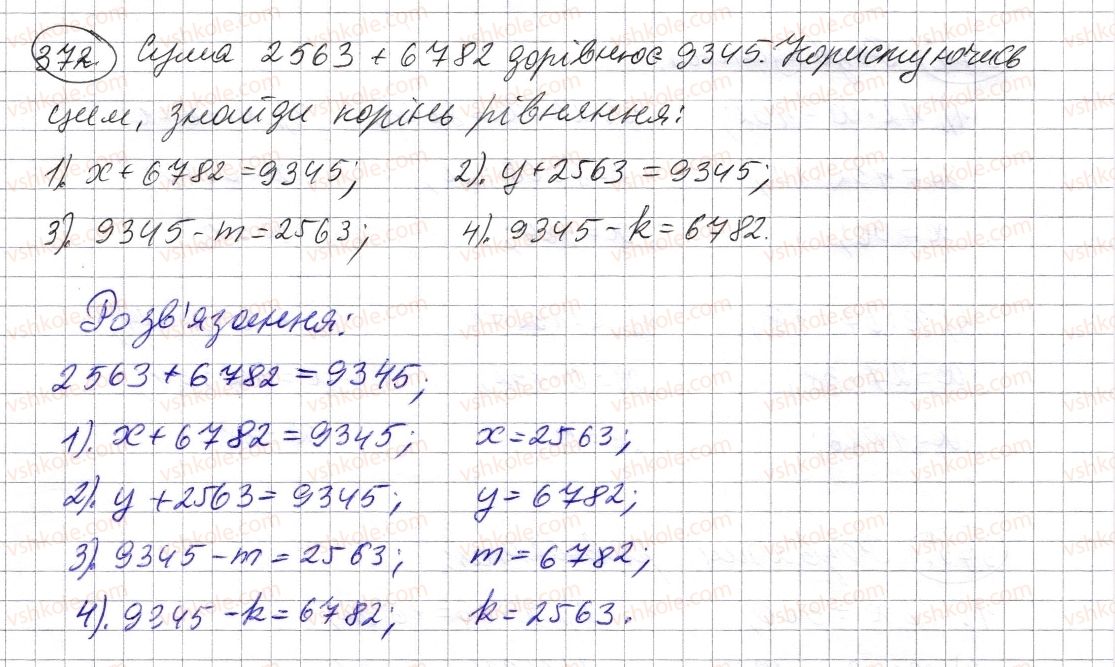 372. Сума 2563 + 6782 дорівнює 9345. Користуючись
цим, знайди корінь рівняння:
1). x + 6782 = 9345; 2). y + 2563 = 9345;
3). 9345 - m = 2563; 4). 9345 - k = 6782.
Розв'язання:
2563 + 6782 = 9345;
1). x + 6782 = 9345; x = 2563;
2). y + 2563 = 9345; y = 6782;
3). 9345 - m = 2563; m = 6782;
4). 9345 - k = 6782; k = 2563.
vshkole.com